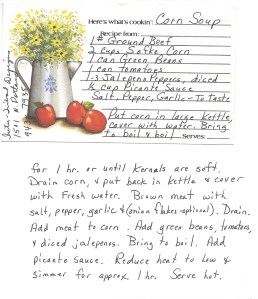 Here's what's cookin': Corn Soup
Recipe from:
1# Ground Beef
2 cups Sofke Corn
1 can Green Beans
1 can Tomatoes
1-3 Jalepena Peppers, diced
½ cup Picante Sauce
Salt, Pepper, Garlic - To Taste
Put corn in large Kettle,
cover with water. Bring
to boil & boil Serves:
for 1 hr. or until Kernals are soft.
Drain corn, & put back in kettle & cover
with Fresh water. Brown meat with
salt, pepper, garlic & (onion flakes-optional). Drain.
Add meat to corn. Add green beans, tomatoes,
& diced jalepenos. Bring to boil. Add
picante sauce. Reduce heat to low &
simmer for approx. 1 hr. Serve hot.